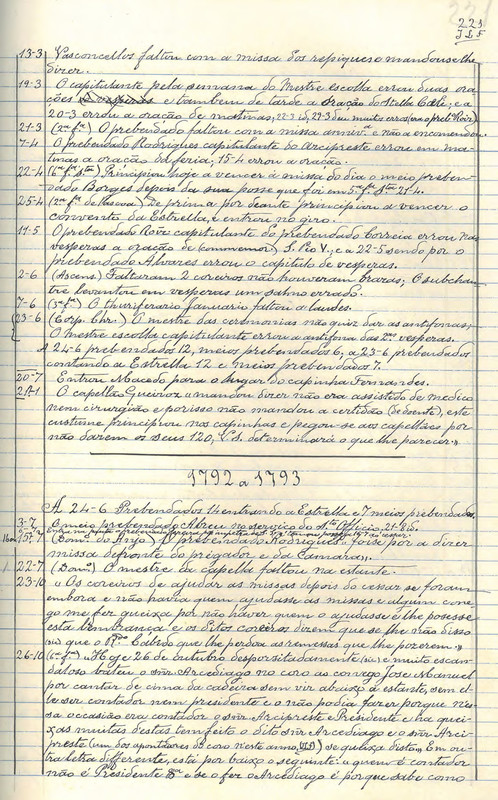 221
J.L.F.
13-3 Vasconcellos faltou com a missa dos repiques o mandouse lhe
dizer.
19-3 O capitulante pela semana do Mestre escolla errou duas ora
ções e tambem de tarde a oração do Stella Coeli; e a
20-3 errou a oração de matinas, 22-3 id, 29-3
21-3 (2ª fª) O prebendado faltou com a missa annivª e não a encomendou.
7-4 O prebendado Rodrigues capitulante do Arcipreste errou em ma
tinas a oração da feria; 15-4 errou a oração.
22-4 (6ª fª Stª) Principiou hoje a vencer á missa do dia o meio preben-
dado Borges depois da sua posse que foi em 5ª fª Stª 21-4.
25-4 (2ª fª de Pascoa) de prima por deante principiou a vencer o
convento da Estrella, e entrou no giro.
11-5 O prebendado capitulante do prebendado Correia errou nas
vesperas a oração de (commemor) S. Pio V.; e a 22-5 sendo por o
prebendado Alvares errou o capitulo de vesperas.
2-6 (Ascens.) Faltaram 2 coreiros não houveram bravas; O subchan
tre levantou em vesperas um salmo errado.
7-6 (3ª fª) O thuriferario Januario faltou a laudes.
23-6 (Corp. Chr.) O mestre das ceremonias não quiz dar as antifonas;
O mestre escolla capitulante errou a antifona das 2as vesperas.
A 24-6 prebendados 12, meios prebendados 6, a 23-6 prebendados
contando a Estrella 12 e meios prebendados 7.
20-7 Entrou Macedo para o lugar do capinha Fernandes.
21-1 O capellão Queiroz u mandou dizer não era assistido de medico
nem cirurgião e por isso não mandou a certidão (de doente), este
custume principiou nos capinhas e pegou-se aos capellães por
não darem os seus 120, V.S. determinará o que lhe parecer.»
1792 a 1793
A 24-6 Prebendados 14 entrando a Estrella e 7 meios prebendados.
3-7 O meio prebendado Abreu no serviço do Stº Officio, 21-8 id.
15-7 (Domº do Anjo) O prebendado Rodrigues foi-se por a dizer
missa defronte do prégador e da Camara».
22-7 (Domº) O mestre da capella faltou na estante.
23-10 «Os coreiros de ajudar as missas depois do cessar se foram
embora e não havia quem ajudasse as missas e algum cone
go me fez queixa por não haver quem o ajudasse e lhe posesse
esta lembrança e os ditos coreiros dizem que se lhe não disso
(sic) que o Rmº Cabido que lhe perdoa as remessas que lhe pozerem.»
26-10 (6ª fª) «Hoje 26 de outubro desporsitadamente (sic) e muito escan
daloso bateu o snr. Arcediago no coro ao conego José Manuel
por cantar de cima da cadeira sem vir abaixo á estante, sem el
le ser contador nem presidente e o não podia fazer porque nes
sa occasião era contador o snr. Arcipreste e Presidente e ha quei
xas muitas destas tem feito o dito snr Arcediago e o snr. Arci
preste (um dos apontadores do coro neste anno, JLF) se queixa disto». Em ou
tra letra differente, está por baixo o seguinte: «quem é contador
não é Presidente e se o fez o Arcediago é porque sabe como